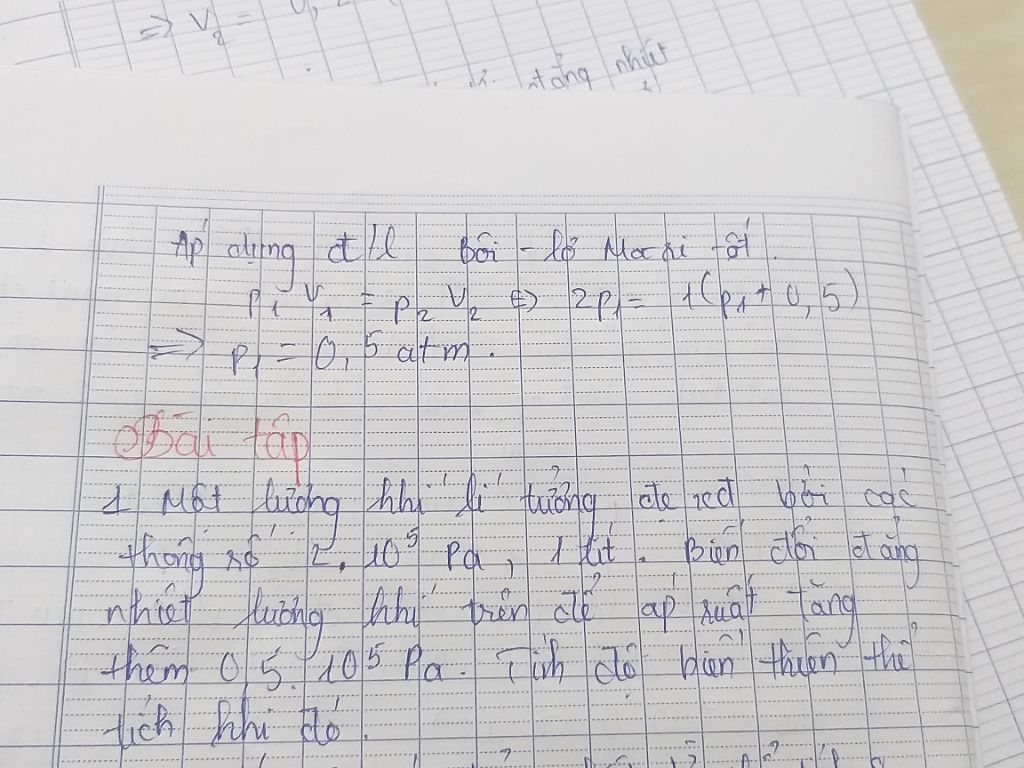 => V₂ =
tảng nhiệt
Áp dụng đ/l Bôi - lơ Ma ri ốt.
p₁ V₁ = p₂ V₂ <=> 2p₁ = 1(p₁ + 0,5)
=> p₁ = 0,5 atm.
Bài tập
1 Một lượng khí lí tưởng đc xđ bởi các
thông số 2.10⁵ Pa, 1 lít. Biến đổi đẳng
nhiệt lượng khí trên để áp suất tăng
thêm 0,5.10⁵ Pa. Tính độ biến thiên thể
tích khí đó.